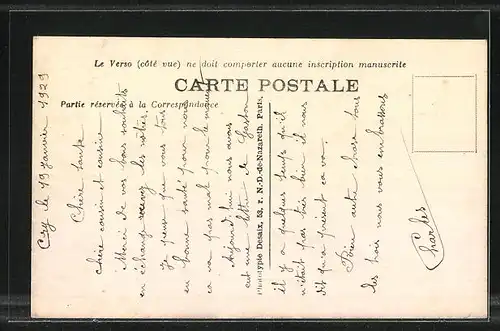 Le Verso (côté vue) ne doit comporter aucune inscription manuscrite
CARTE POSTALE
Partie réservée à la Correspondance
Phototypie Desaix, 53, r. N.-D.-de-Nazareth, Paris.
le 19 Janvier 1929
Chère tante
chère cousin et cousine
Merci de vos bons souhaits
en échange recevez les nôtres.
Je pense que vous êtes
en bonne santé pour nous
ça va pas mal pour le
Aujourd'hui nous avons
eut une lettre de Gaston
il y a quelques temps qu'il
n'était pas bien bien il nous
dit qu'a présent ça va.
Rien autre chose tous
les trois nous vous embrassons
Charles